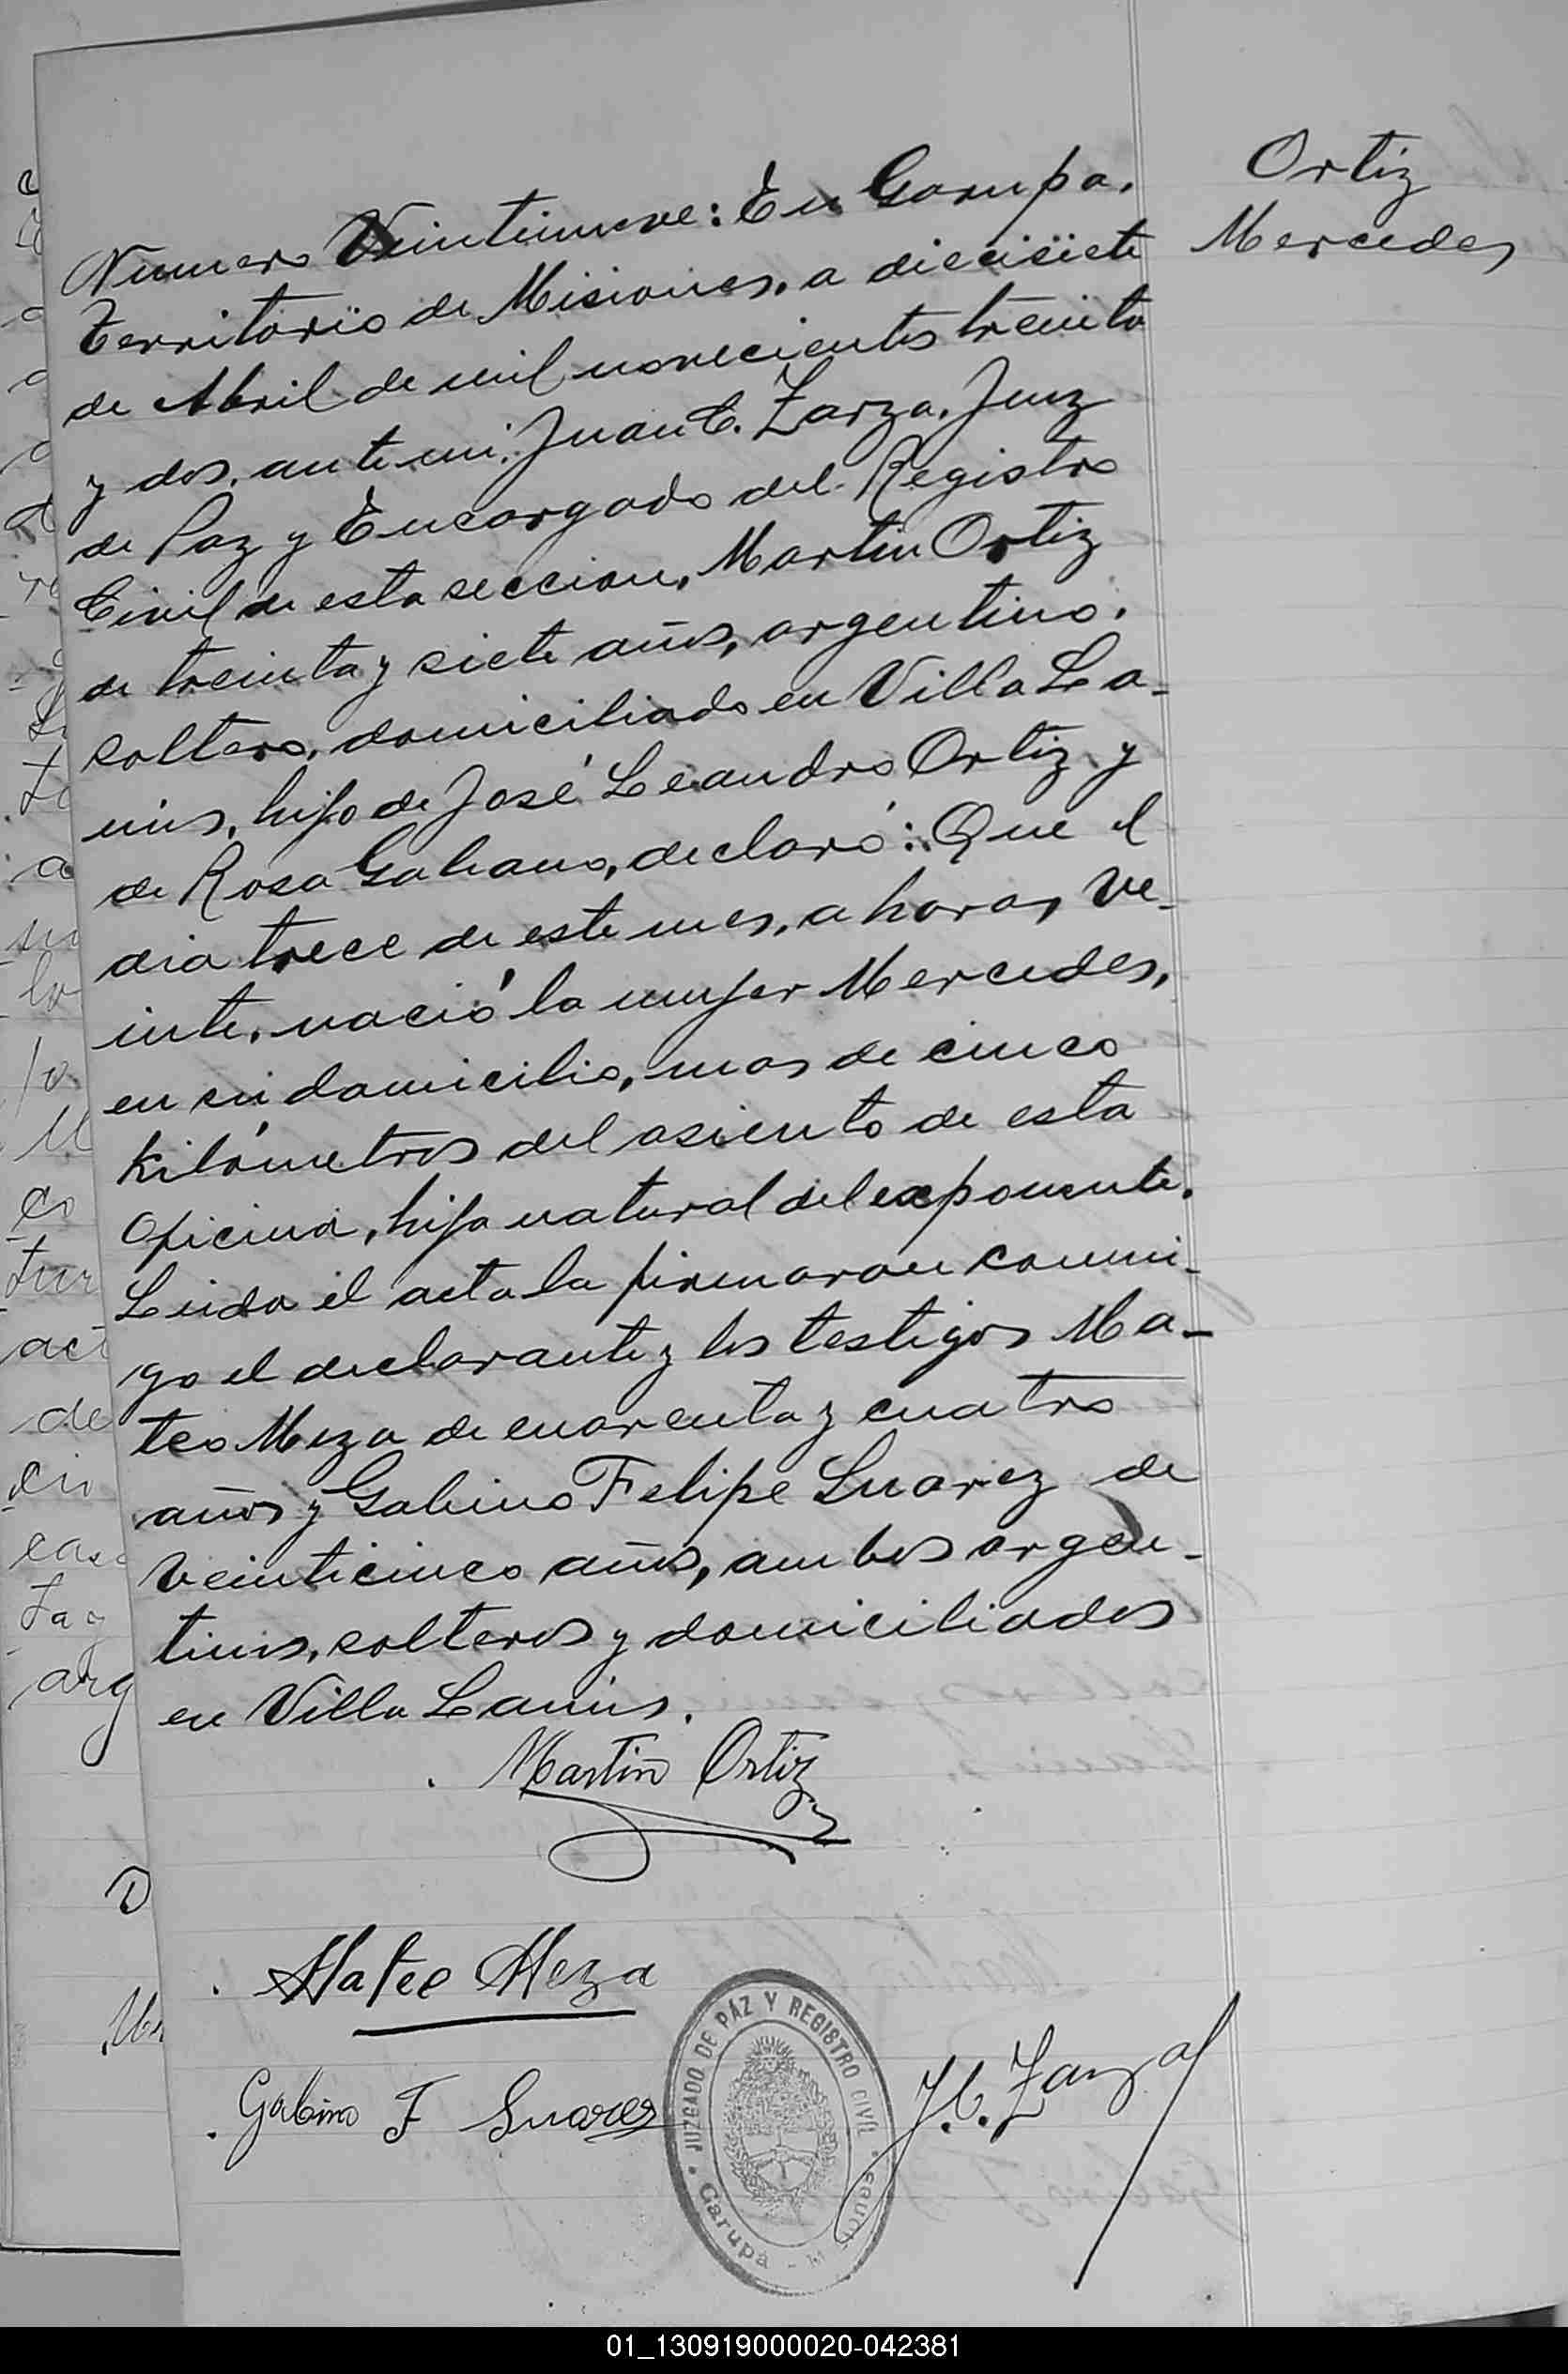 Ortiz
Mercedes
Numero Veintinueve: En Garupa,
territorio de Misiones, a diecisiete
de Abril de mil novecientos treinta
y dos, ante mi, Juan C. Zarza, Juez
de Paz y Encargado del Registro
Civil de esta seccion, Martin Ortiz
de treinta y siete años, argentino,
soltero, domiciliado en Villa La-
nús, hijo de José Leandro Ortiz y
de Rosa Galeano, declaró: Que el
dia trece de este mes, a horas ve-
inte, nació la mujer Mercedes,
en su domicilio, mas de cinco
kilómetros del asiento de esta
oficina, hija natural del exponente.
Leida el acta la firmaron conmi-
go el declarante y los testigos Ma-
teo Meza de cuarenta y cuatro
años y Gabino Felipe Suarez de
veinticinco años, ambos argen-
tinos, solteros y domiciliados
en Villa Lanús.
Martin Ortiz
Mateo Meza
Gabino F Suarez
J. C. Zarza
JUZGADO DE PAZ Y REGISTRO CIVIL
Garupá
01_130919000020-042381